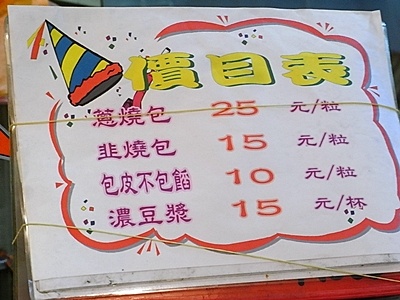 價目表
蔥燒包 25 元/粒
韭燒包 15 元/粒
包皮不包餡 10 元/粒
濃豆漿 15 元/杯